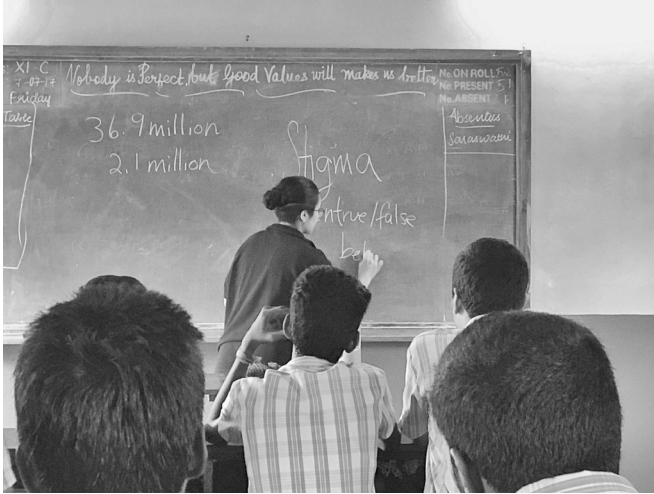 XI - C
7-07-17
Friday
Nobody is Perfect, but Good Values will makes us better
No. ON ROLL
No. PRESENT 51
No. ABSENT 1
Absentees
Saraswathi
36.9 million
2.1 million
Stigma
ntrue/false
be